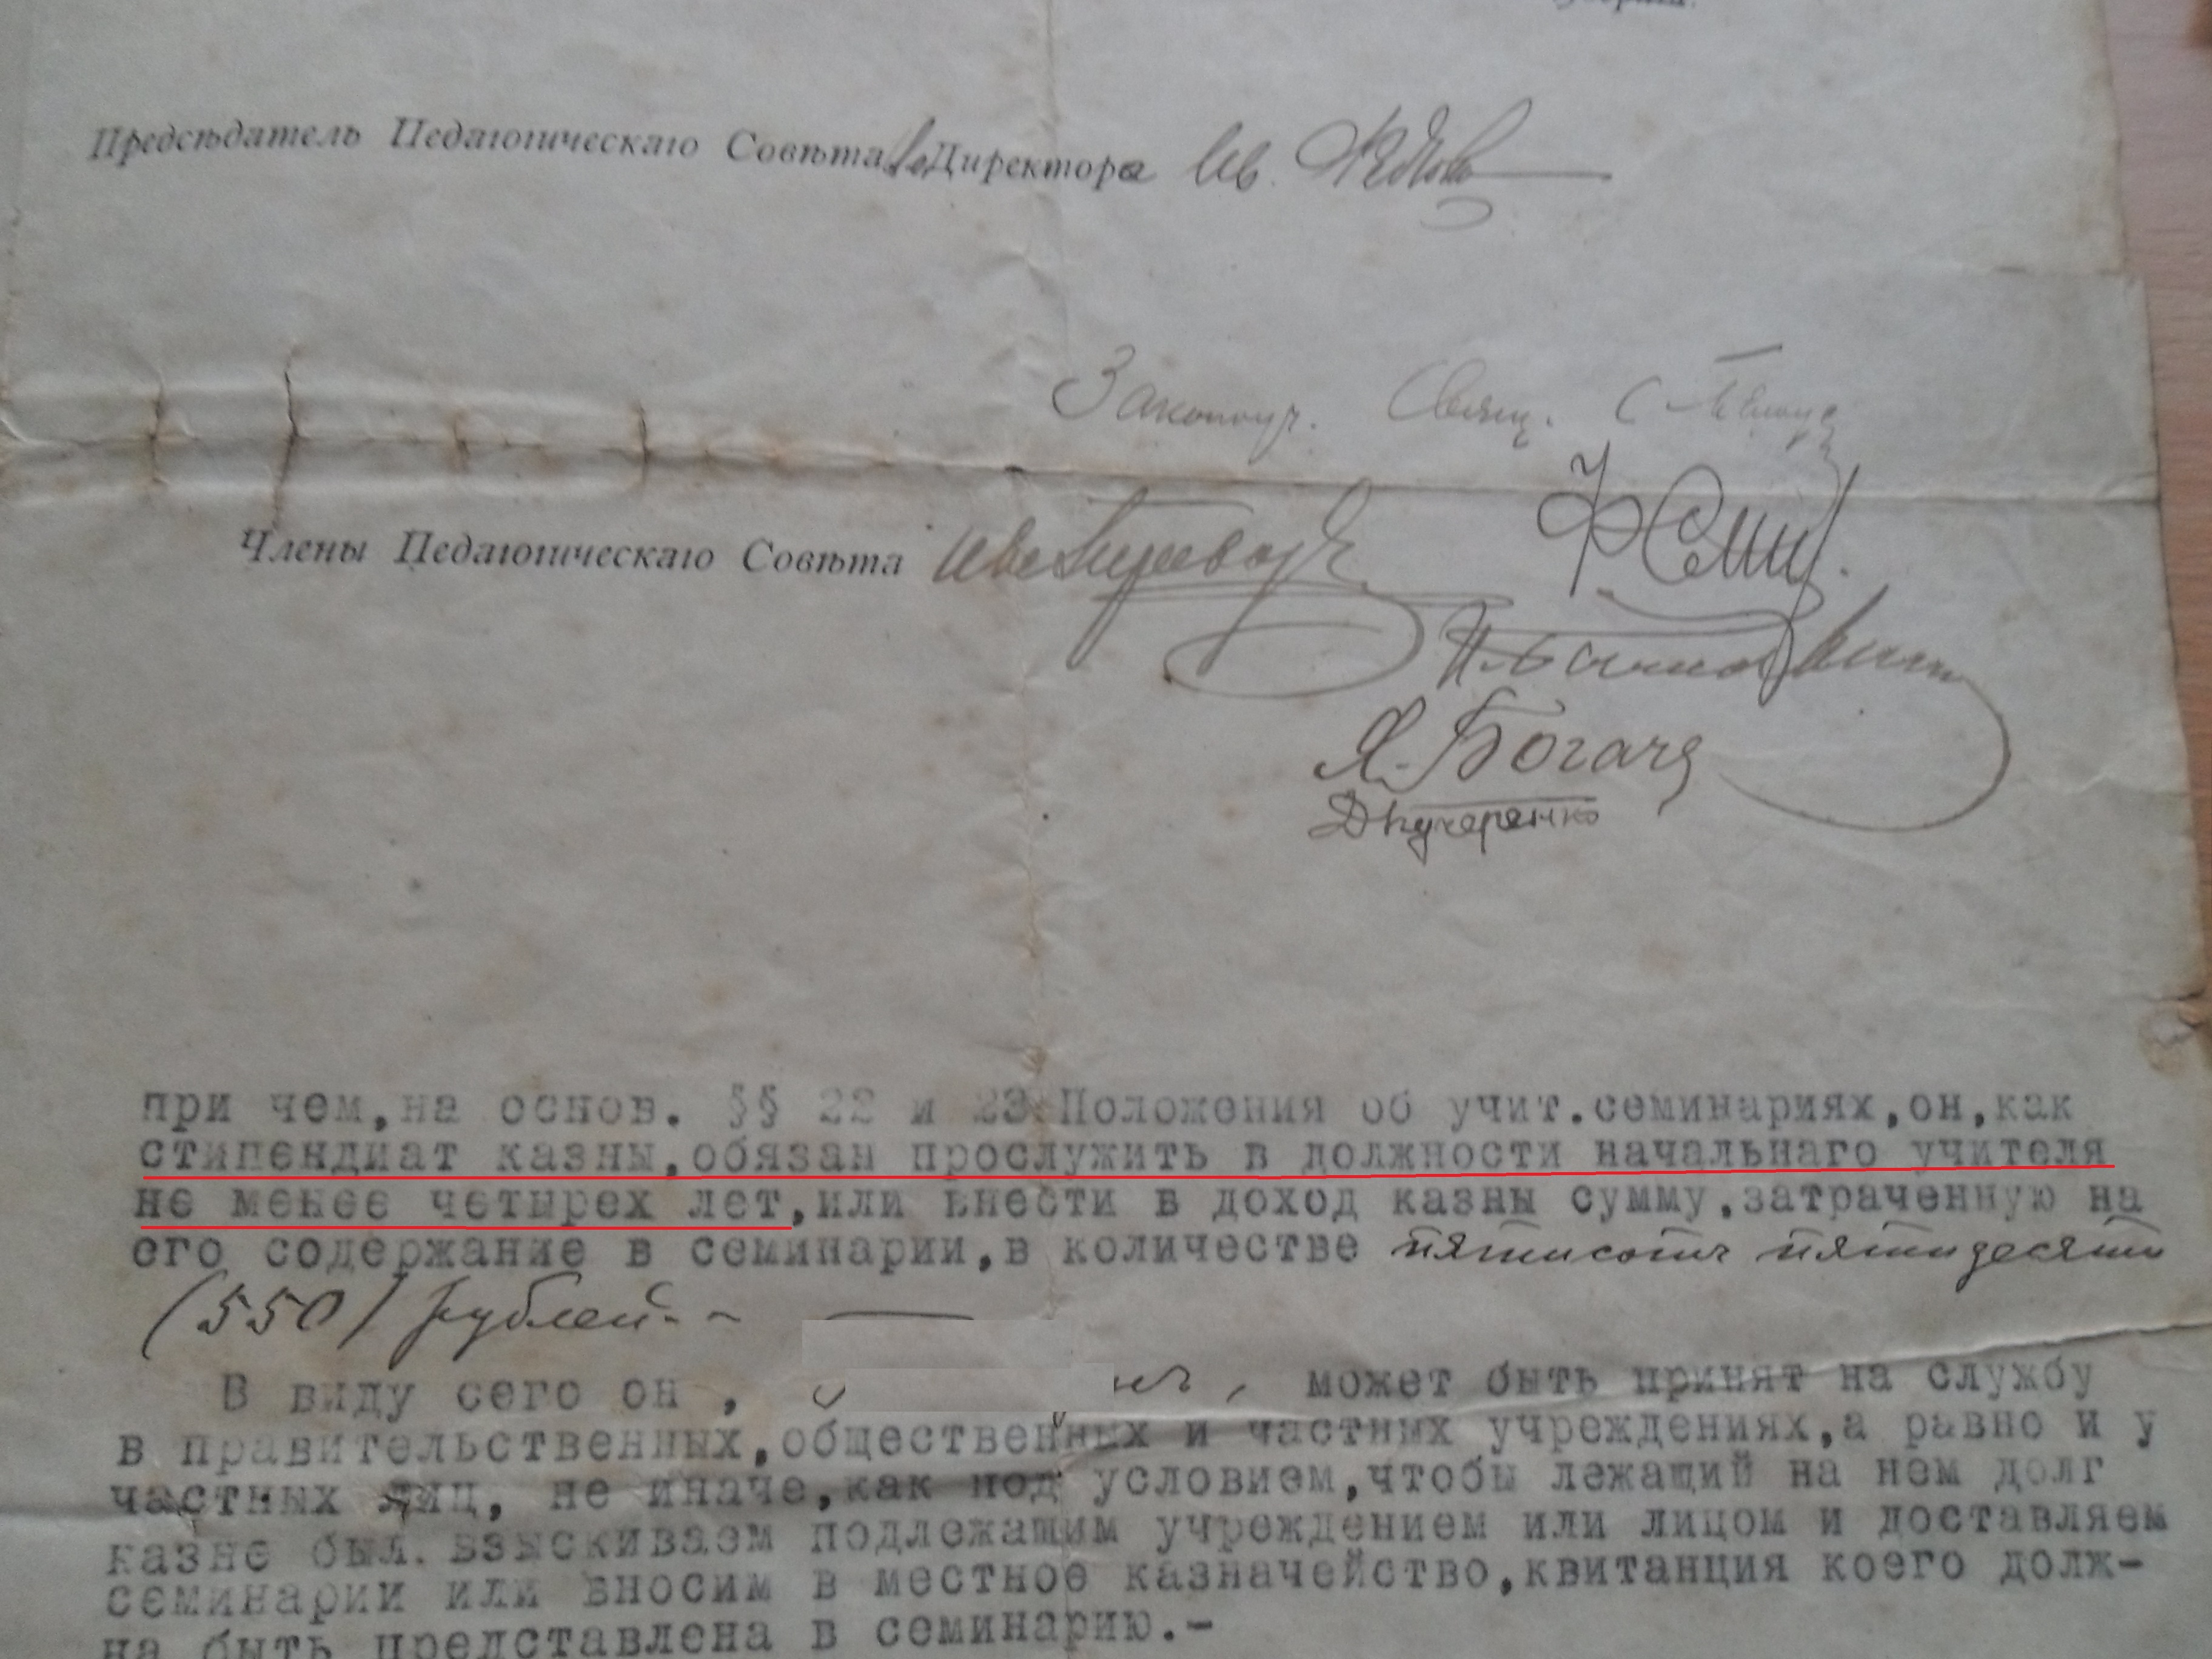 Предсѣдатель Педагогическаго Совѣта Директора Ив.
Законоуч. Свящ. С.
Члены Педагогическаго Совѣта
Я. Богач
ДКучеренко
при чем,на основ. §§ 22 и 23 Положения об учит.семинариях,он,как
стипендиат казны,обязан прослужить в должности начальнаго учителя
не менее четырех лет,или внести в доход казны сумму,затраченную на
его содержание в семинарии,в количестве пятисотъ пятидесяти
(550) рублей.-
В виду сего он , может быть принят на службу
в правительственных,общественных и частных учреждениях,а равно и у
частных лиц, не иначе,как под условием,чтобы лежащий на нем долг
казне был взыскиваем подлежащим учреждением или лицом и доставляем
семинарии или вносим в местное казначейство,квитанция коего долж-
на быть представлена в семинарию.-